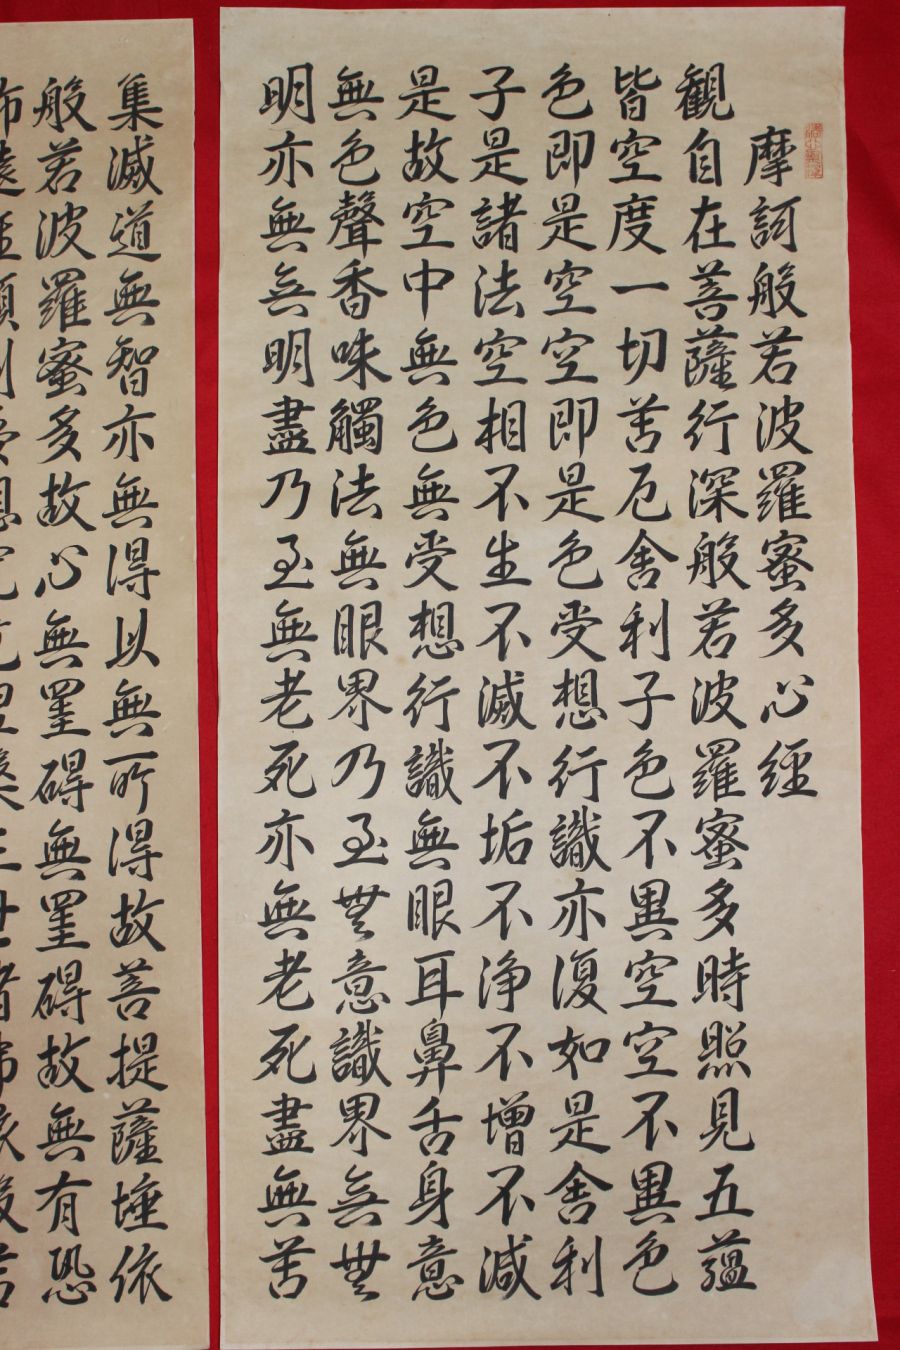 摩訶般若波羅蜜多心経
觀自在菩薩行深般若波羅蜜多時照見五蘊
皆空度一切苦厄舍利子色不異空空不異色
色即是空空即是色受想行識亦復如是舍利
子是諸法空相不生不滅不垢不淨不增不減
是故空中無色無受想行識無眼耳鼻舌身意
無色聲香味觸法無眼界乃至無意識界無無
明亦無無明盡乃至無老死亦無老死盡無苦
集滅道無智亦無得以無所得故菩提薩埵依
般若波羅蜜多故心無罣碍無罣碍故無有恐